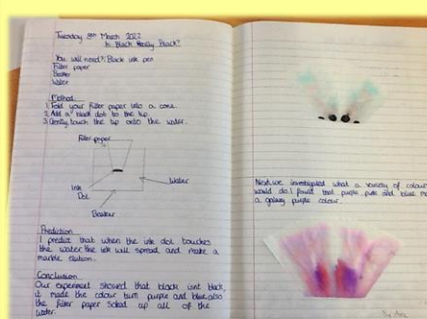 Tuesday 8th March 2022
Is Black Really Black?
You will need: Black ink pen
Filter paper
Beaker
Water
Method
1. Fold your filter paper into a cone.
2. Add a black dot to the tip.
3. Gently touch the tip onto the water.
Filter paper
Ink
Dot
Water
Beaker
Prediction
I predict that when the ink dot touches
the water the ink will spread and make a
marble
Conclusion
Our experiment showed that black isnt black,
it made the colour turn purple and blue, also
the filter paper soked up all of the
water.
Next, we investigated what a variety of colour
would do. I found that purple, pink and blue
a galaxy purple colour.
By